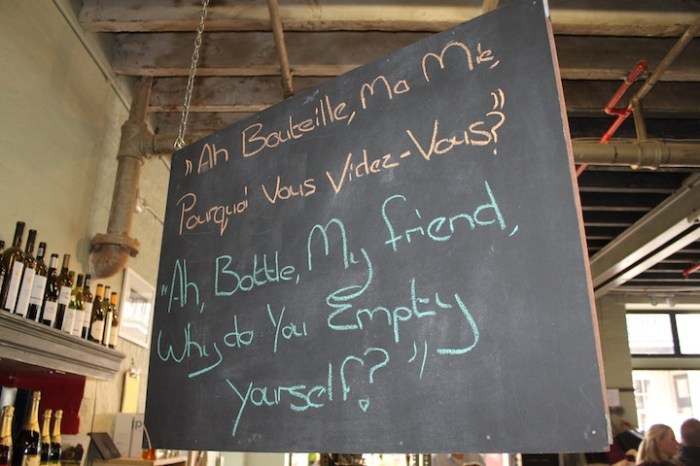 "Ah Bouteille, Ma Mie,
Pourquoi Vous Videz-Vous?"
"Ah, Bottle, My friend,
Why do You Empty
yourself?"